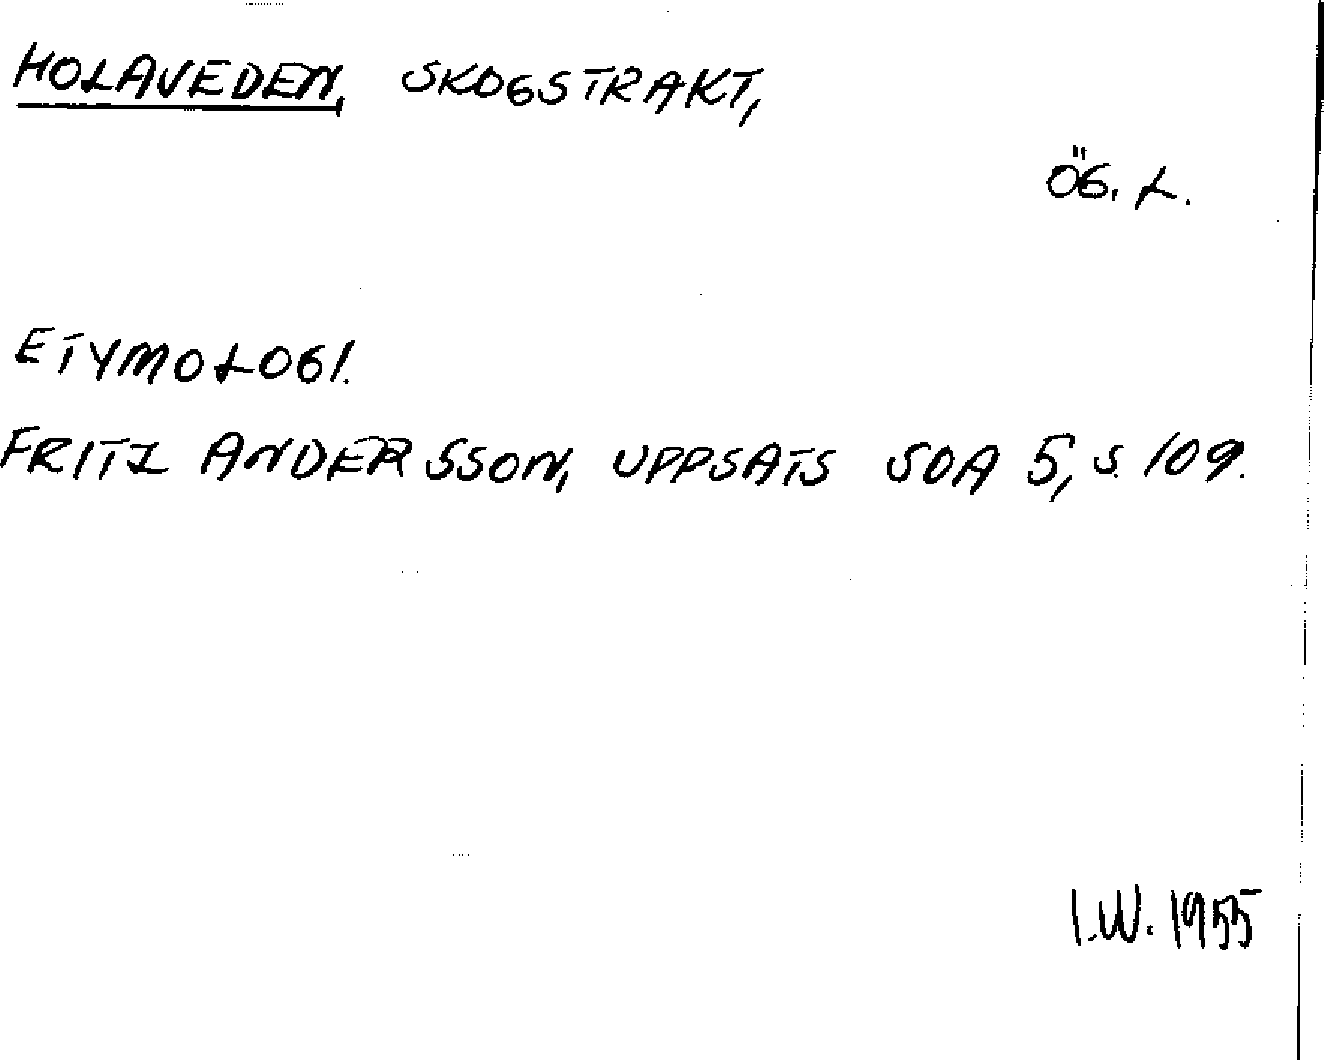 HOLAVEDEN, SKOGSTRAKT,
ÖG. L.
ETYMOLOGI.
FRITZ ANDERSSON, UPPSATS SOA 5, S. 109.
I.W. 1955